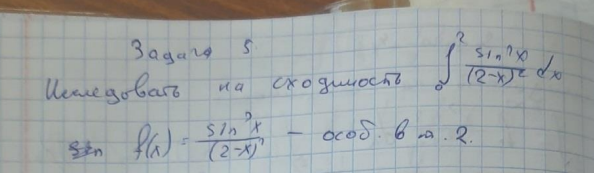 Задача 5
Исследовать на сходимость ∫₀² sin²x/(2-x)² dx
f(x) = sin²x/(2-x)² - особ. в т. 2.